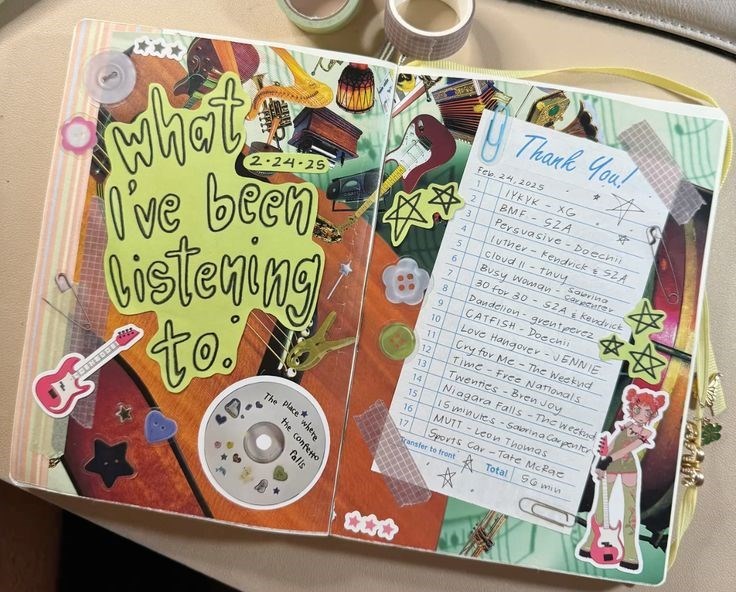 what
I've been
listening
to:
2·24·25
The place where
the confetti
falls
Thank You!
Feb. 24, 2025
1 IYKYK - XG
2 BMF - SZA
3 Persuasive - Doechii
4 luther - Kendrick & SZA
5 cloud 11 - thuy
6 Busy Woman - Sabrina
Carpenter
7 30 for 30 - SZA & Kendrick
8 Dandelion - grentperez
9 CATFISH - Doechii
10 Love Hangover - JENNIE
11 Cry for Me - The Weeknd
12 Time - Free Nationals
13 Twenties - Bren Joy
14 Niagara Falls - The Weeknd
15 15 minutes - Sabrina Carpenter
16 MUTT - Leon Thomas
17 Sports Car - Tate McRae
Transfer to front
Total 56 min